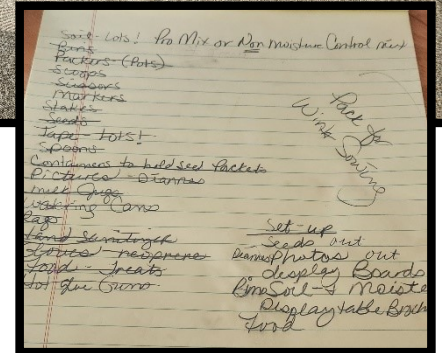 Soil - Lots! Pro Mix or Non Moisture Control mix
Bins
Packers - (Pots)
Scoops
Scissors
Markers
Stakes
Seeds
Tape - Lots!
Spoons
Containers to hold seed Packets
Pictures - Dianne
milk Jugs
watering Cans
Rags
Hand Sanitizer
Gloves - neoprene
Food - Treats
Hot glue Guns
Pack for
Wint Sowing
Set-up
Seeds out
Diannes Photos out
display Boards
Bins Soil - & Moiste
Display table
Food